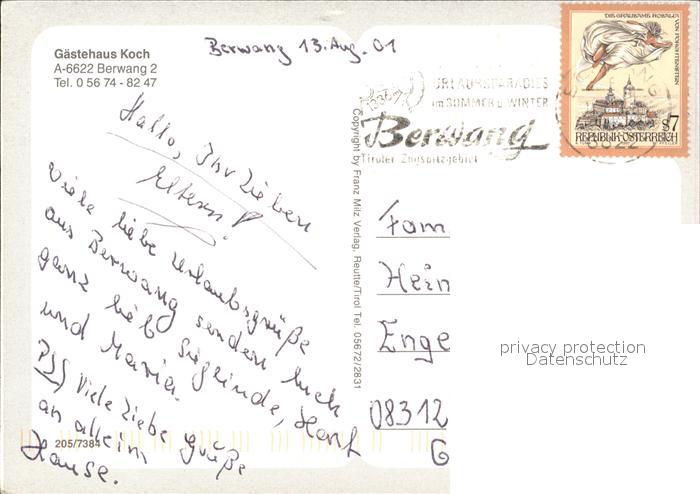 Gästehaus Koch
A-6622 Berwang 2
Tel. 0 56 74 - 82 47
Berwang 13. Aug. 01
Hallo, Ihr Lieben
Eltern!
Viele liebe Urlaubsgrüße
aus Berwang senden Euch
ganz lieb Sieglinde, Horst
und Maria.
PS) Viele Liebe Grüße
an alle im
Hause.
205/7384
Copyright by Franz Milz Verlag, Reutte/Tirol Tel. 05672/2831
URLAUBSPARADIES
im SOMMER u. WINTER
Berwang
Tiroler Zugspitzgebiet
DIE GRAUSAME ROSALIA
VON FORCHTENSTEIN
S7
REPUBLIK ÖSTERREICH
6622
Fam
Hein
Enge
08312
G
privacy protection
Datenschutz